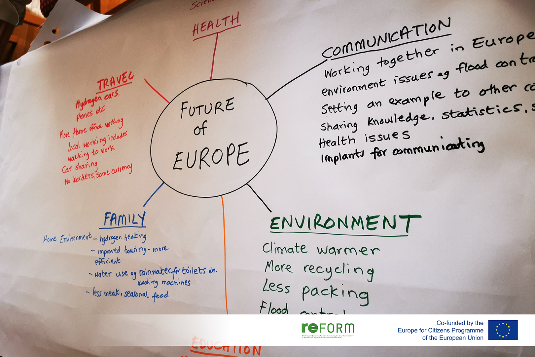 HEALTH
COMMUNICATION
Working together in Europe
environment issues eg flood
Setting an example to other
Sharing knowledge, statistics,
Health issues
Implants for communicating
TRAVEL
Hydrogen cars,
etc
More home working
local working
walking to work
Car sharing
No borders, same currency
FUTURE
of
EUROPE
FAMILY
Home Environment - hydrogen heating
- improved housing - more
efficient
- water use eg rainwater for toilets
washing machines
- less meat, seasonal food
ENVIRONMENT
Climate warmer
More recycling
Less packing
Flood
EDUCATION
reFORM
Co-funded by the
Europe for Citizens Programme
of the European Union